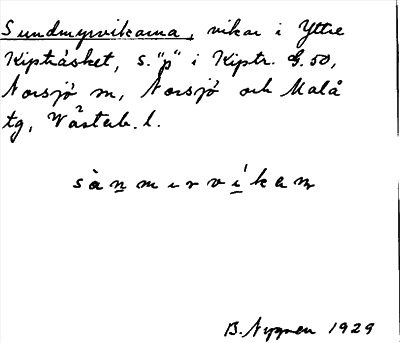 Sundmyrvikarna, vikar i Yttre
Kipträsket, s. "p" i Kiptr. G. 50,
Norsjö sn, Norsjö och Malå
tg, Västerb. l.
sànmırvíkan
B. Nygren 1929